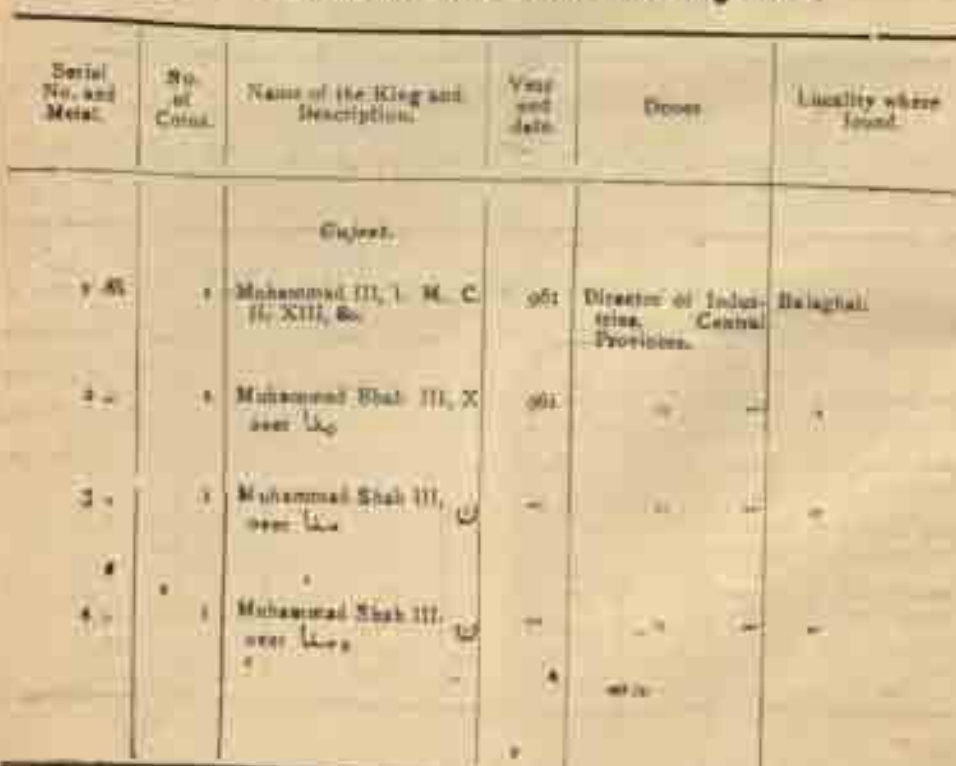 Serial No. and Metal.
No. of Coins.
Name of the King and Description.
Year and date.
Donor
Locality where found.
Gujrat.
1 Æ 1 Muhammad III, I. M. C. 961 Director of Indus- Balaghat.
II, XIII, &c. tries, Central
Provinces.
2 „ Muhammad Shah III, X 961 „ „ „
over
3 „ 1 Muhammad Shah III, ن „ „ „
over
4 „ 1 Muhammad Shah III, ن „ „ „
over